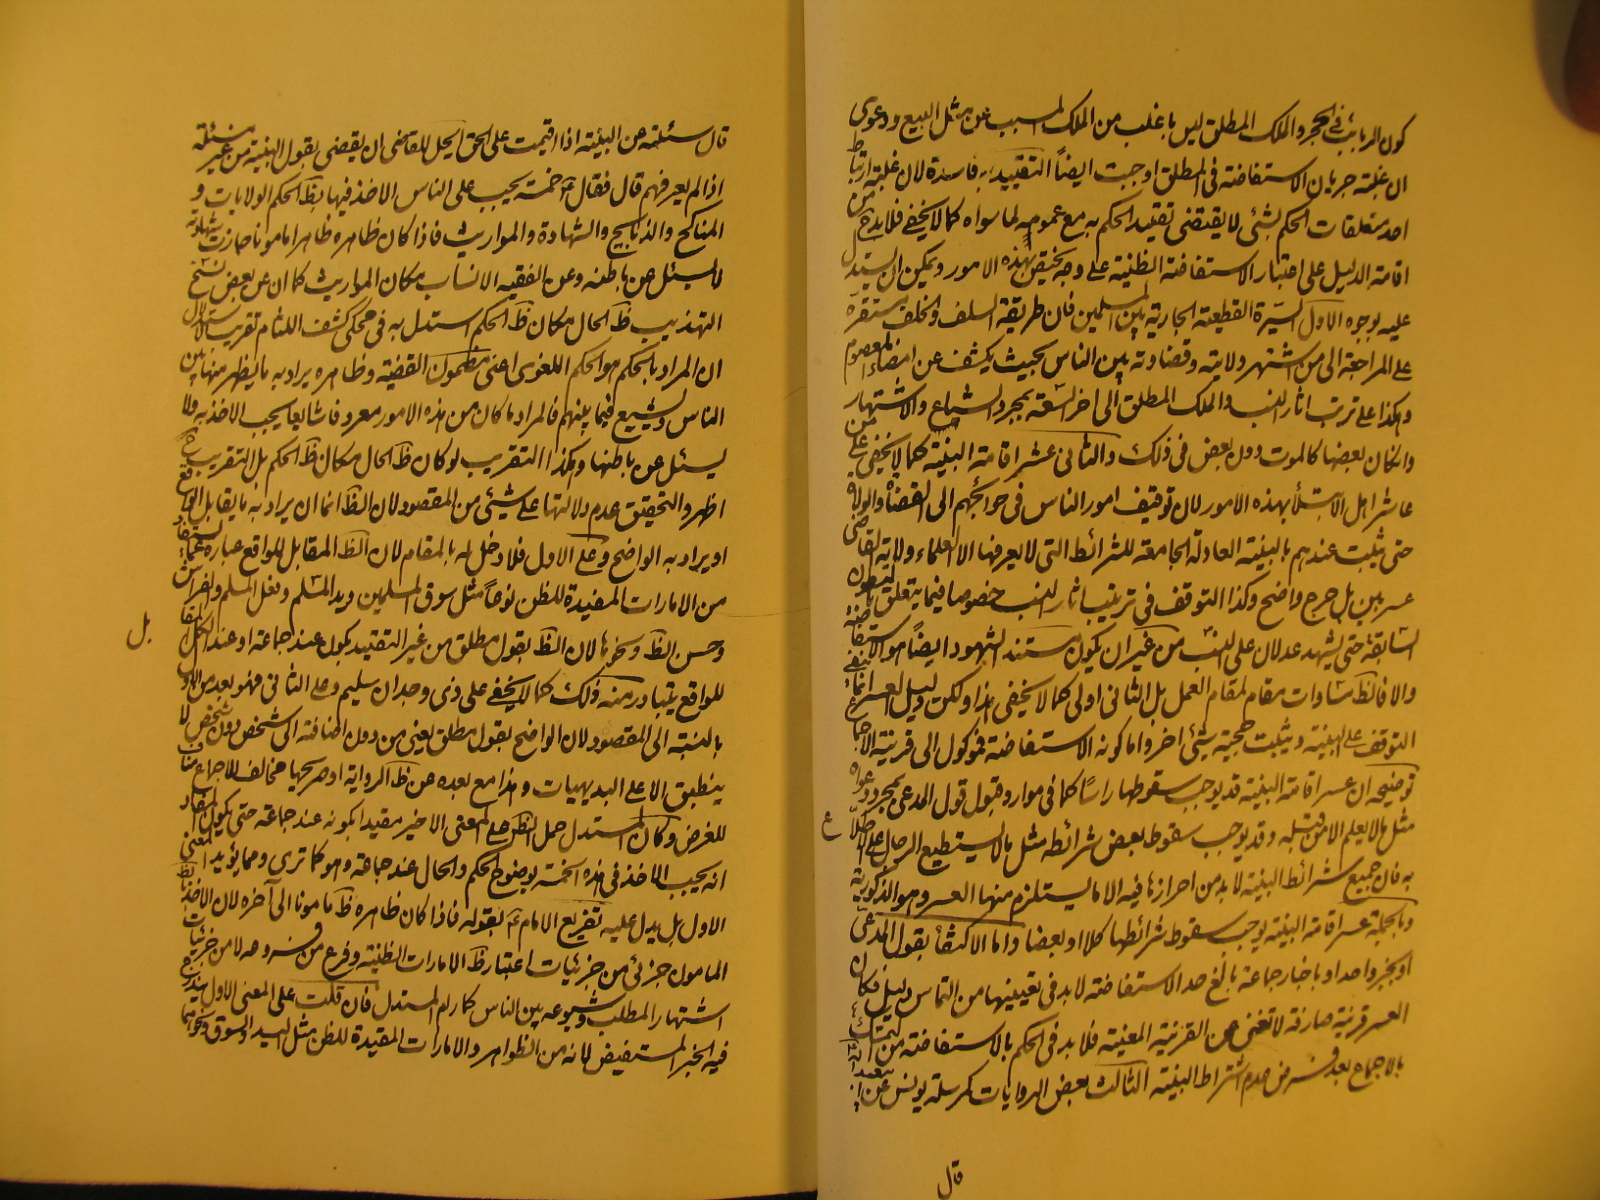 كون المرء في الحجر والملك المطلق ليس باغلب من الملك المسبب عن مثل البيع ودعوى
ان غلبة جريان الاستفاضة في المطلق اوجبت ايضاً التقييد به فاسدة لان غلبة ارتباط
احد متعلقات الحكم بشئ لا يقتضى تقييد الحكم به مع عمومه لما سواه كما لا يخفى فلا بد من
اقامة الدليل على اعتبار الاستفاضة الظنية على وجه يختص بهذه الامور ويمكن ان يستدل
عليه بوجوه الاول السيرة القطعية الجارية بين المسلمين فان طريقة السلف والخلف مستقرة
على المراجعة الى من اشتهر ولايته وقضاوته بين الناس بحيث يكشف عن امضاء المعصوم
وهكذا على ترتب اثار النسب والملك المطلق الى اخر السبعة بمجرد الشياع والاشتهار
وانكان بعضها كالموت دون بعض في ذلك والثانى عسر اقامة البينة كما لا يخفى على من
عاشر اهل الابتلاء بهذه الامور لان توقيف امور الناس في حوائجهم الى القضاة والولاة
حتى يثبت عندهم بالبينة العادلة الجامعة للشرائط التى لا يعرفها الا العلماء ولاية القاضى
عسر بين بل حرج واضح وكذا التوقف في ترتيب اثار النسب خصوصا فيما يتعلق
السابقة حتى يشهد عدلان على النسب من غير ان يكون مستند الشهود ايضاً هو الاستفاضة
والا فالظ مساوات مقام لمقام العمل بل الثانى اولى كما لا يخفى هذا ولكن دليل العسر انما ينفى
التوقف على البينة ويثبت حجية شئ اخر واما كونه الاستفاضة فموكول الى قرينة الاجماع
توضيحه ان عسر اقامة البينة قد يوجب سقوطها راساً كما في موارد قبول قول المدعى بمجرد دعواه
مثل ما لا يعلم الا من قبله وقد يوجب سقوط بعض شرائطه مثل ما لا يستطيع الرجال على الاطلاع
به فان جميع شرائط البينة لا بد من احرازها فيه الا ما يستلزم منها العسر وهو الذكورية
وبالجملة عسر اقامة البينة يوجب سقوط شرائطها كلا او بعضا واما الاكتفاء بقول المدعى
او بخبر واحد او باخبار جماعة بالغ حد الاستفاضة لا بد في تعيينها من التماس دليل فكان
العسر قرينة صارفة لا تغنى عن القرينة المعينة فلا بد في الحكم بالاستفاضة من التمسك
بالاجماع بعد فرض عدم اشتراط البينة الثالث بعض الروايات كمرسلة يونس عن
قال
قال سئلته عن البينة اذا اقيمت على الحق ايحل للقاضى ان يقضى بقول البينة من غير مسئلة
اذا لم يعرفهم قال فقال ع خمسة يجب على الناس الاخذ فيها بظ الحكم الولايات و
المناكح والذبايح والشهادة والمواريث فاذا كان ظاهره ظاهرا مامونا جازت شهادته
لا يسئل عن باطنه وعن الفقيه الانساب مكان المواريث كما ان عن بعض نسخ
التهذيب ظ الحال مكان ظ الحكم استدل به في محكى كشف اللثام تقريب الاستدلال
ان المراد بالحكم هو الحكم اللغوى اعنى مضمون القضية وظاهره يراد به ما يظهر منها بين
الناس ويشيع فيما بينهم فالمراد ما كان من هذه الامور معروفا شايعا يجب الاخذ به ولا
يسئل عن باطنها وهكذا التقريب لو كان ظ الحال مكان ظ الحكم بل التقريب ح
اظهر والتحقيق عدم دلالتها على شئ من المقصود لان الظ انما ان يراد به ما يقابل الواقع
او يراد به الواضح وعلى الاول فلا دخل له بالمقام لان الظ المقابل للواقع عبارة عما يستفاد
من الامارات المفيدة للظن نوعاً مثل سوق المسلمين ويد المسلم وفعل المسلم والفراش
وحسن الظ ونحوها لان الظ بقول مطلق من غير التقييد بكون عند جماعة او عند الكل المقابل
بل
للواقع يتبادر منه ذلك كما لا يخفى على ذى وجدان سليم وعلى الثانى فهو بعد من الاول
بالنسبة الى المقصود لان الواضح بقول مطلق يعنى من دون اضافة الى شخص دون شخص لا
ينطبق الا على البديهيات وهذا مع بعده عن ظ الرواية او صريحها مخالف للاجماع مناف
للغرض وكان المستدل حمل الظ على المعنى الاخير مقيدا بكونه عند جماعة حتى يكون المفاد
انه يجب الاخذ في هذه الخمسة بوضوح الحكم والحال عند جماعة وهو كما ترى ومما يؤيد المعنى
الاول بل يدل عليه تفريع الامام ع بقوله فاذا كان ظاهره ظ مامونا الى آخره لان الاخذ بالظ
المامون جزئى من جزئيات اعتبار ظ الامارات الظنية وفرع من فروعه لا من جزئيات
اشتهار المطلب وشيوعه بين الناس كما رام المستدل فان قلت على المعنى الاول يندرج
فيه الخبر المستفيض لانه من الظواهر والامارات المفيدة للظن مثل اليد والسوق ونحوهما